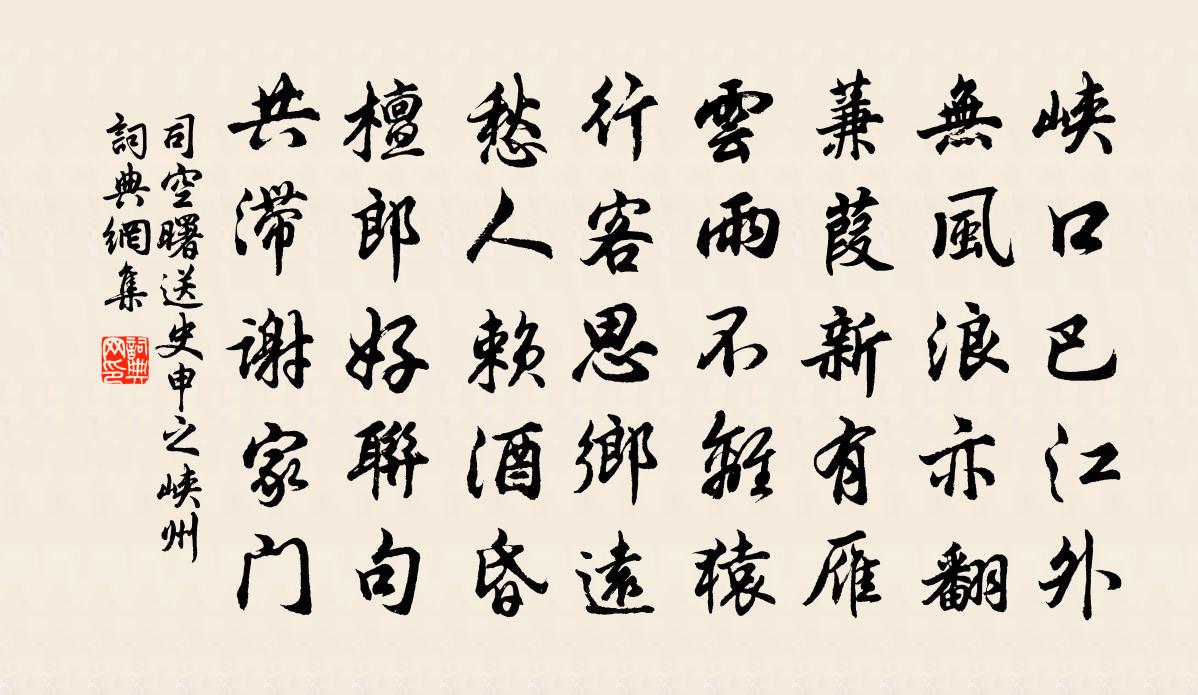 峽口巴江外
無風浪亦翻
蒹葭新有雁
雲雨不離猿
行客思鄉遠
愁人賴酒昏
檀郎好聯句
共滯謝家門
司空曙送史申之峽州
詞典網集
詞典网印